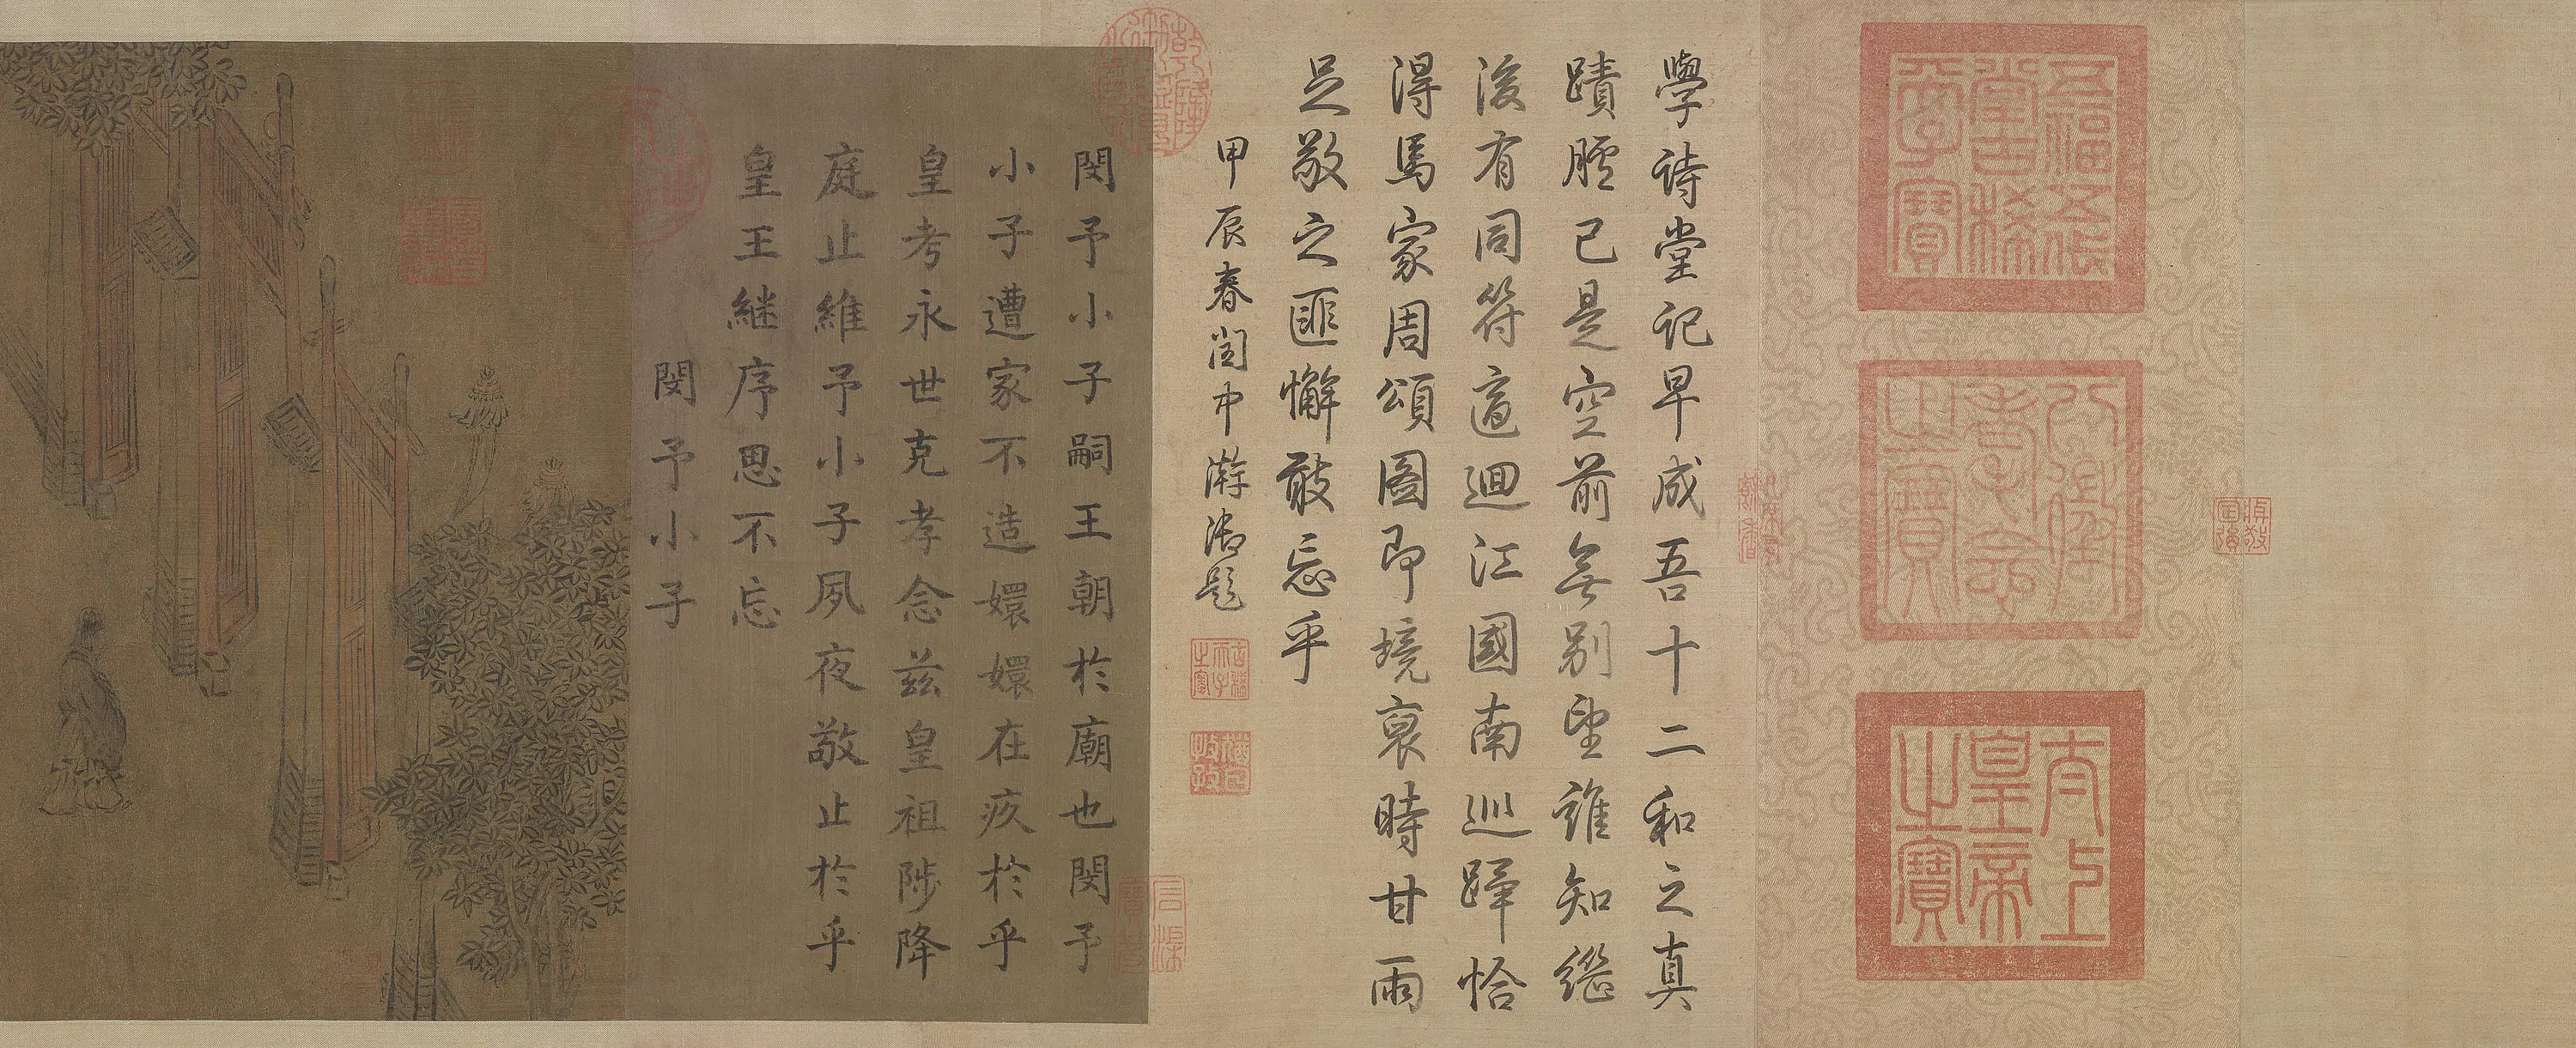 五福五代
堂古稀
天子寶
八徵
耄念
之寶
太上
皇帝
之寶
學詩堂記早成吾十二和之真
蹟臚已是空前無別望誰知繼
後有同符適迴江國南巡蹕恰
得馬家周頌圖即境裒時甘雨
足敬之匪懈敢忘乎
甲辰春閏中澣御題
古稀
天子
之寶
猶日
孜孜
閔予小子嗣王朝於廟也閔予
小子遭家不造嬛嬛在疚於乎
皇考永世克孝念兹皇祖陟降
庭止維予小子夙夜敬止於乎
皇王継序思不忘
閔予小子